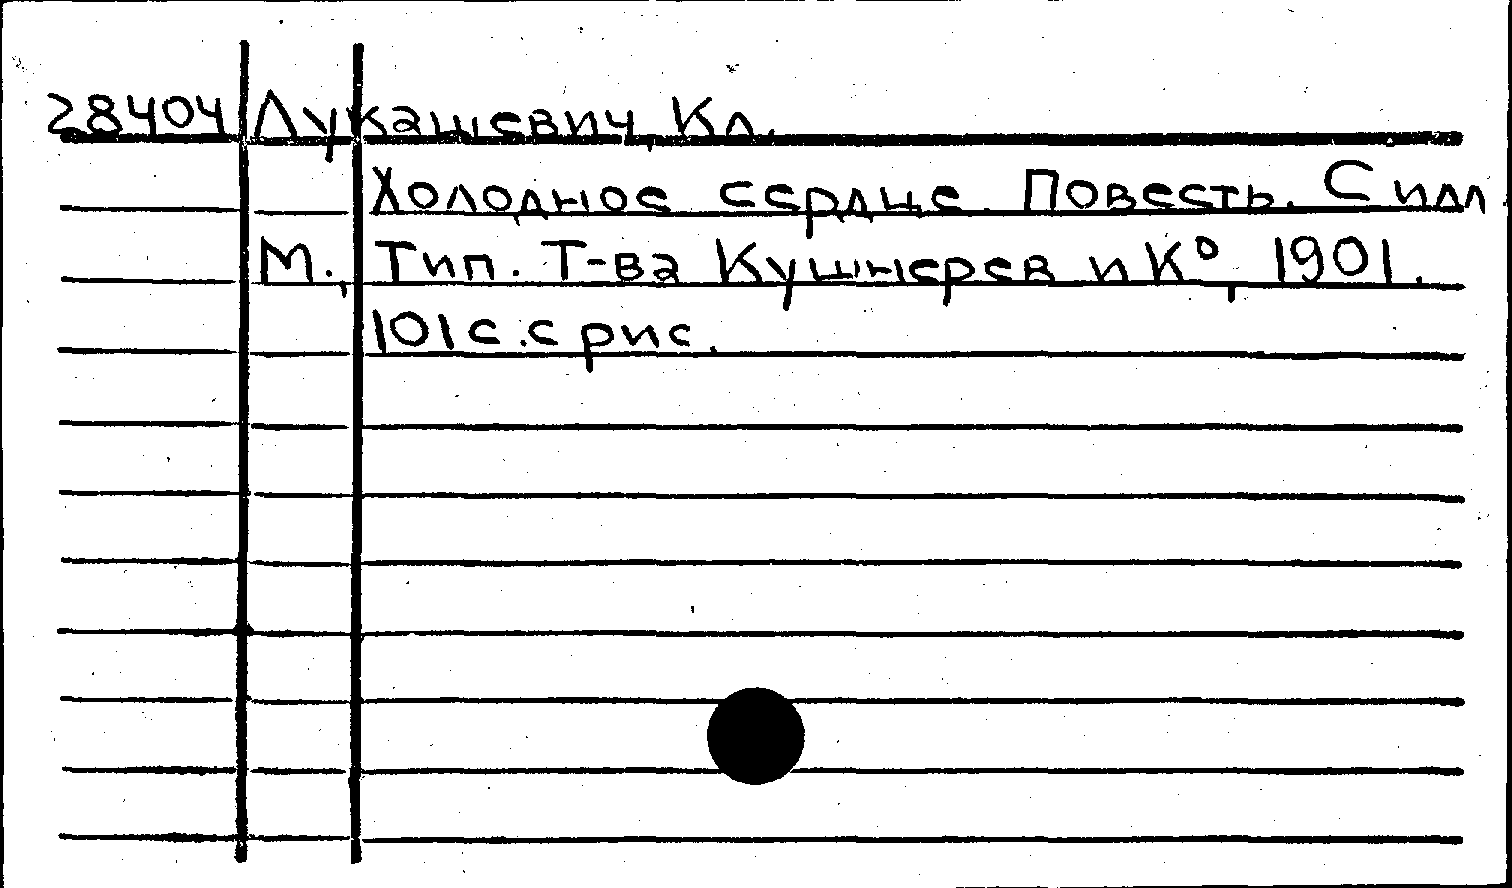 28404 Лукашевич, Кл.
Холодное сердце. Повесть. С илл.
М., Тип. Т-ва Кушнерев и К°, 1901.
101 с. с рис.